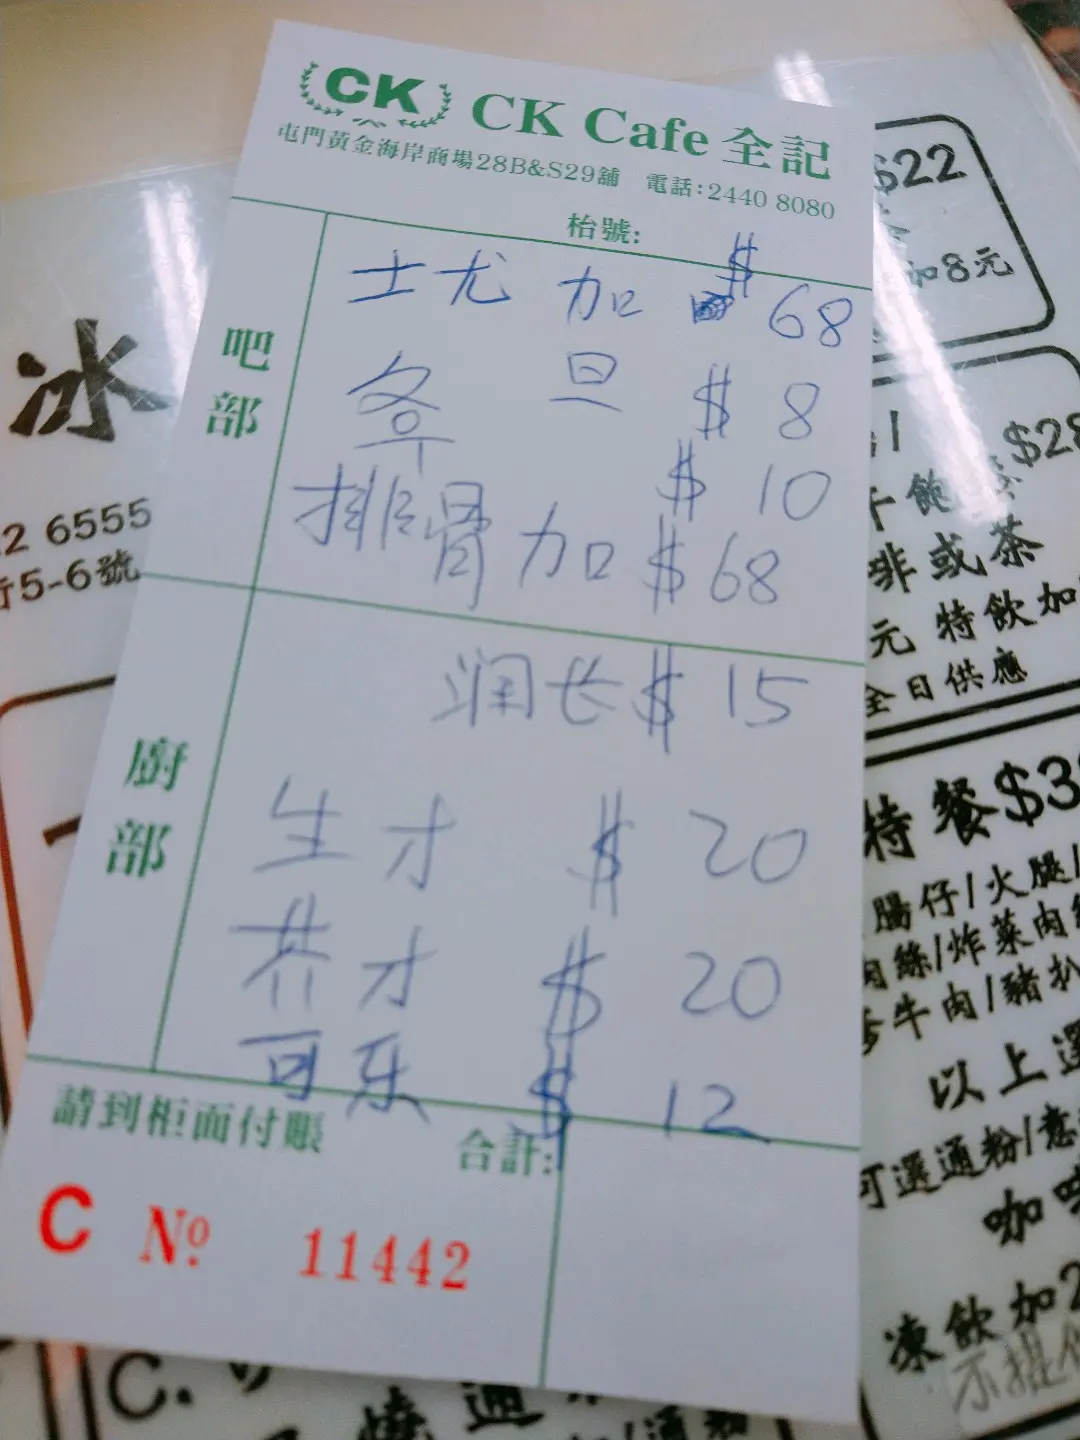 CK CK Cafe 全記
屯門黃金海岸商場28B&S29舖 電話:2440 8080
枱號:
吧部
士尤 加 $68
旦 $8
$10
排骨 加 $68
廚部
润长 $15
生才 $20
芥才 $20
可乐 $12
請到柜面付賬 合計:
C Nº 11442
冰
2 6555
5-6號
$22
加8元
$28
飽
啡或茶
元 特飲加
全日供應
特餐$3
腸仔/火腿/
肉絲/炸菜肉
牛肉/豬扒
以上選
可選通粉/意
咖啡
凍飲加2
不提供
C.
燒
通
/通粉